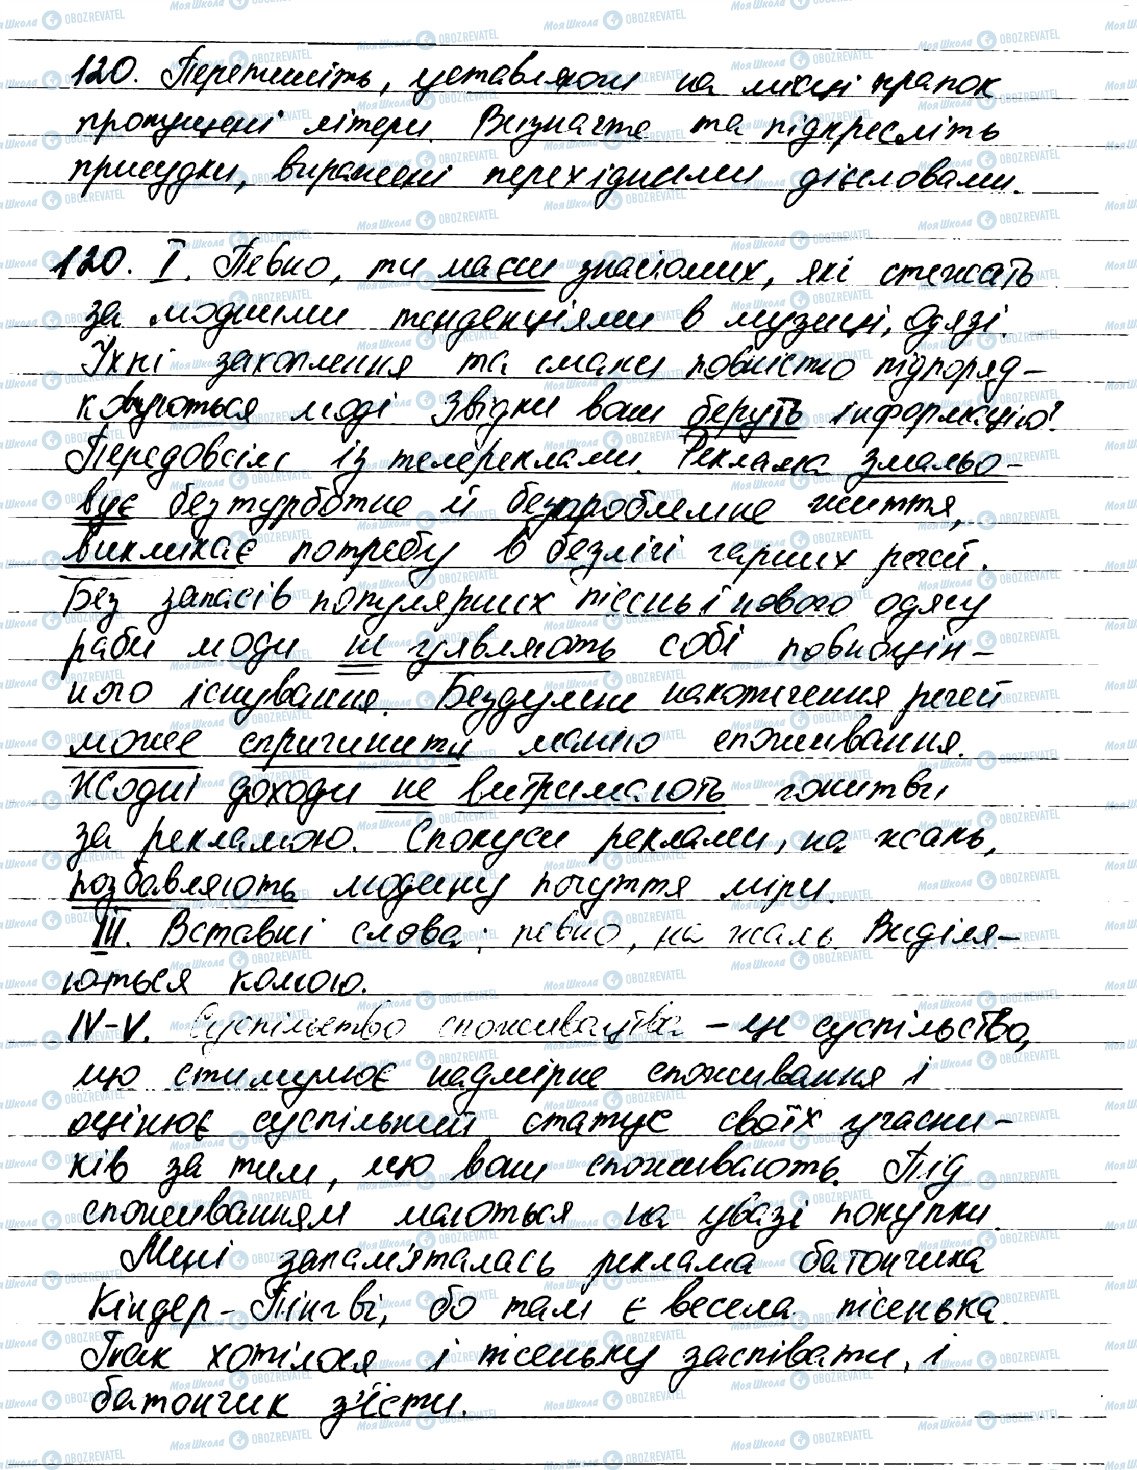 120. Перепишіть, уставляючи на місці крапок
пропущені літери. Визначте та підкресліть
присудки, виражені перехідними дієсловами.
120. I. Певно, ти маєш знайомих, які стежать
за модними тенденціями в музиці, одязі.
Їхні захоплення та смаки повністю підпоряд-
ковуються моді Звідки вони беруть інформацію?
Передовсім із телереклами. Реклама змальо-
вує безтурботне й безпроблемне життя,
викликає потребу в безлічі гарних речей.
Без запасів популярних пісень і нового одягу
раби моди не уявляють собі повноцін-
ного існування. Бездумне накопичення речей
може спричинити манію споживання.
Жодні доходи не витримають гонитви
за рекламою. Спокуси реклами, на жаль,
позбавляють людину почуття міри.
III. Вставні слова: певно, на жаль. Виділя-
ються комою.
IV-V. Суспільство споживацтва - це суспільство,
що стимулює надмірне споживання і
оцінює суспільний статус своїх учасни-
ків за тим, що вони споживають. Під
споживанням маються на увазі покупки.
Мені запам'яталась реклама батончика
Кіндер-Пінгві, бо там є весела пісенька.
Так хотілося і пісеньку заспівати, і
батончик з'їсти.